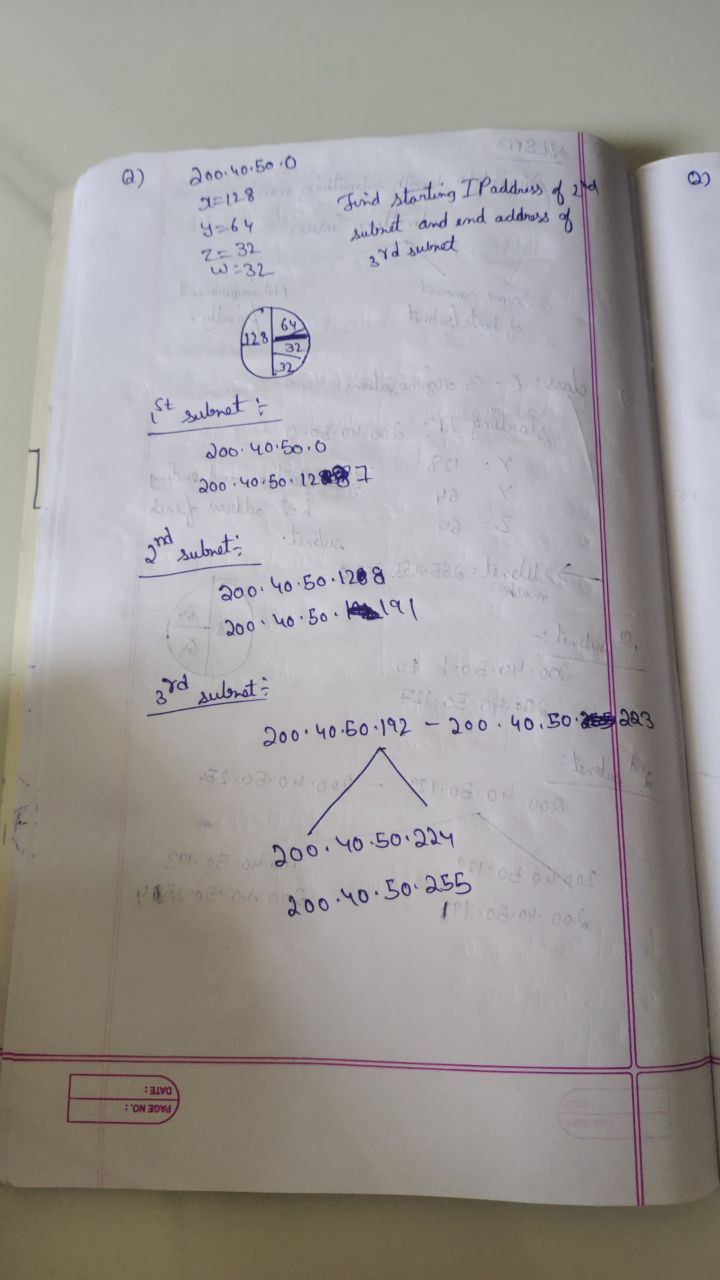 Q)
200.40.50.0
x=128
y=64
z=32
w=32
Find starting IP address of 2nd
subnet and end address of
3rd subnet
128
64
32
32
1st subnet:-
200.40.50.0
200.40.50.127
2nd subnet:-
200.40.50.128
200.40.50.191
3rd subnet:-
200.40.50.192 - 200.40.50.223
200.40.50.224
200.40.50.255
PAGE NO.:
DATE:
Q)